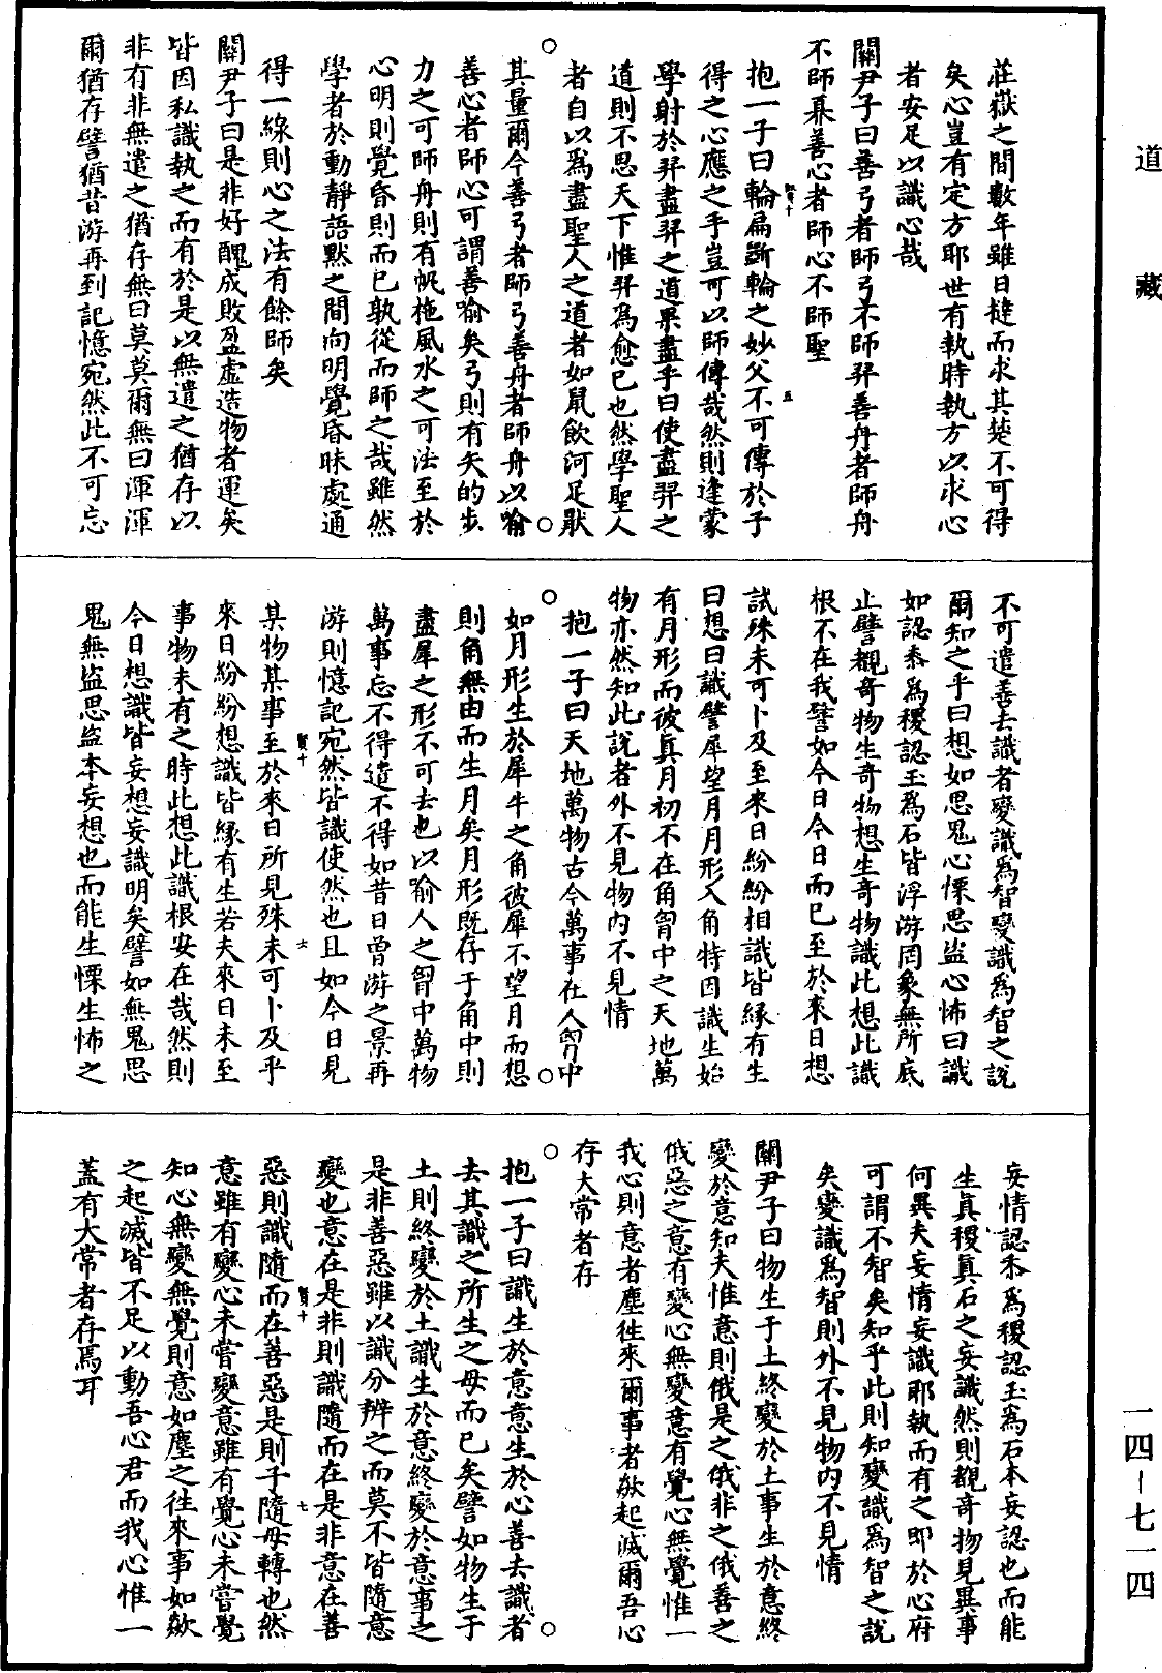 道藏
莊嶽之間數年雖日撻而求其楚不可得
矣心豈有定方耶世有執時執方以求心
者安足以識心哉
關尹子曰善弓者師弓不師羿善舟者師舟
不師奡善心者師心不師聖
抱一子曰輪扁斲輪之妙父不可傳於子
得之心應之手豈可以師傳哉然則逢蒙
學射於羿盡羿之道果盡乎曰使盡羿之
道則不思天下惟羿爲愈已也然學聖人
者自以爲盡聖人之道者如鼠飲河足厭
其量爾今善弓者師弓善舟者師舟以喻
善心者師心可謂善喻矣弓則有矢的步
力之可師舟則有帆柂風水之可法至於
心明則覺昏則而已孰從而師之哉雖然
學者於動靜語默之間向明覺昏昧處通
得一線則心之法有餘師矣
關尹子曰是非好醜成敗盈虛造物者運矣
皆因私識執之而有於是以無遣之猶存以
非有非無遣之猶存無曰莫莫爾無曰渾渾
爾猶存譬猶昔游再到記憶宛然此不可忘
不可遣善去識者變識爲智變識爲智之說
爾知之乎曰想如思鬼心慄思盜心怖曰識
如認黍爲稷認玉爲石皆浮游罔象無所底
止譬覩奇物生奇物想生奇物識此想此識
根不在我譬如今日今日而已至於來日想
試殊未可卜及至來日紛紛相識皆緣有生
曰想曰識譬犀望月月形入角特因識生始
有月形而彼真月初不在角胷中之天地萬
物亦然知此說者外不見物内不見情
抱一子曰天地萬物古今萬事在人胷中
如月形生於犀牛之角彼犀不望月而想
則角無由而生月矣月形既存于角中則
盡犀之形不可去也以喻人之胷中萬物
萬事忘不得遣不得如昔日曾游之景再
游則憶記宛然皆識使然也且如今日見
某物某事至於來日所見殊未可卜及乎
來日紛紛想識皆緣有生若夫來日未至
事物未有之時此想此識根安在哉然則
今日想識皆妄想妄識明矣譬如無鬼思
鬼無盜思盜本妄想也而能生慄生怖之
妄情認黍爲稷認玉爲石本妄認也而能
生真稷真石之妄識然則覩奇物見異事
何異夫妄情妄識耶執而有之即於心府
可謂不智矣知乎此則知變識爲智之說
矣變識爲智則外不見物内不見情
關尹子曰物生于土終變於土事生於意終
變於意知夫惟意則俄是之俄非之俄善之
俄惡之意有變心無變意有覺心無覺惟一
我心則意者塵徃來爾事者欻起滅爾吾心
存大常者存
抱一子曰識生於意意生於心善去識者
去其識之所生之母而已矣譬如物生于
土則終變於土識生於意終變於意事之
是非善惡雖以識分辨之而莫不皆隨意
變也意在是非則識隨而在是非意在善
惡則識隨而在善惡是則子隨母轉也然
意雖有變心未嘗變意雖有覺心未嘗覺
知心無變無覺則意如塵之往來事如欻
之起滅皆不足以動吾心君而我心惟一
蓋有大常者存焉耳
賢十
五
賢十
六
賢十
七
一四－七一四